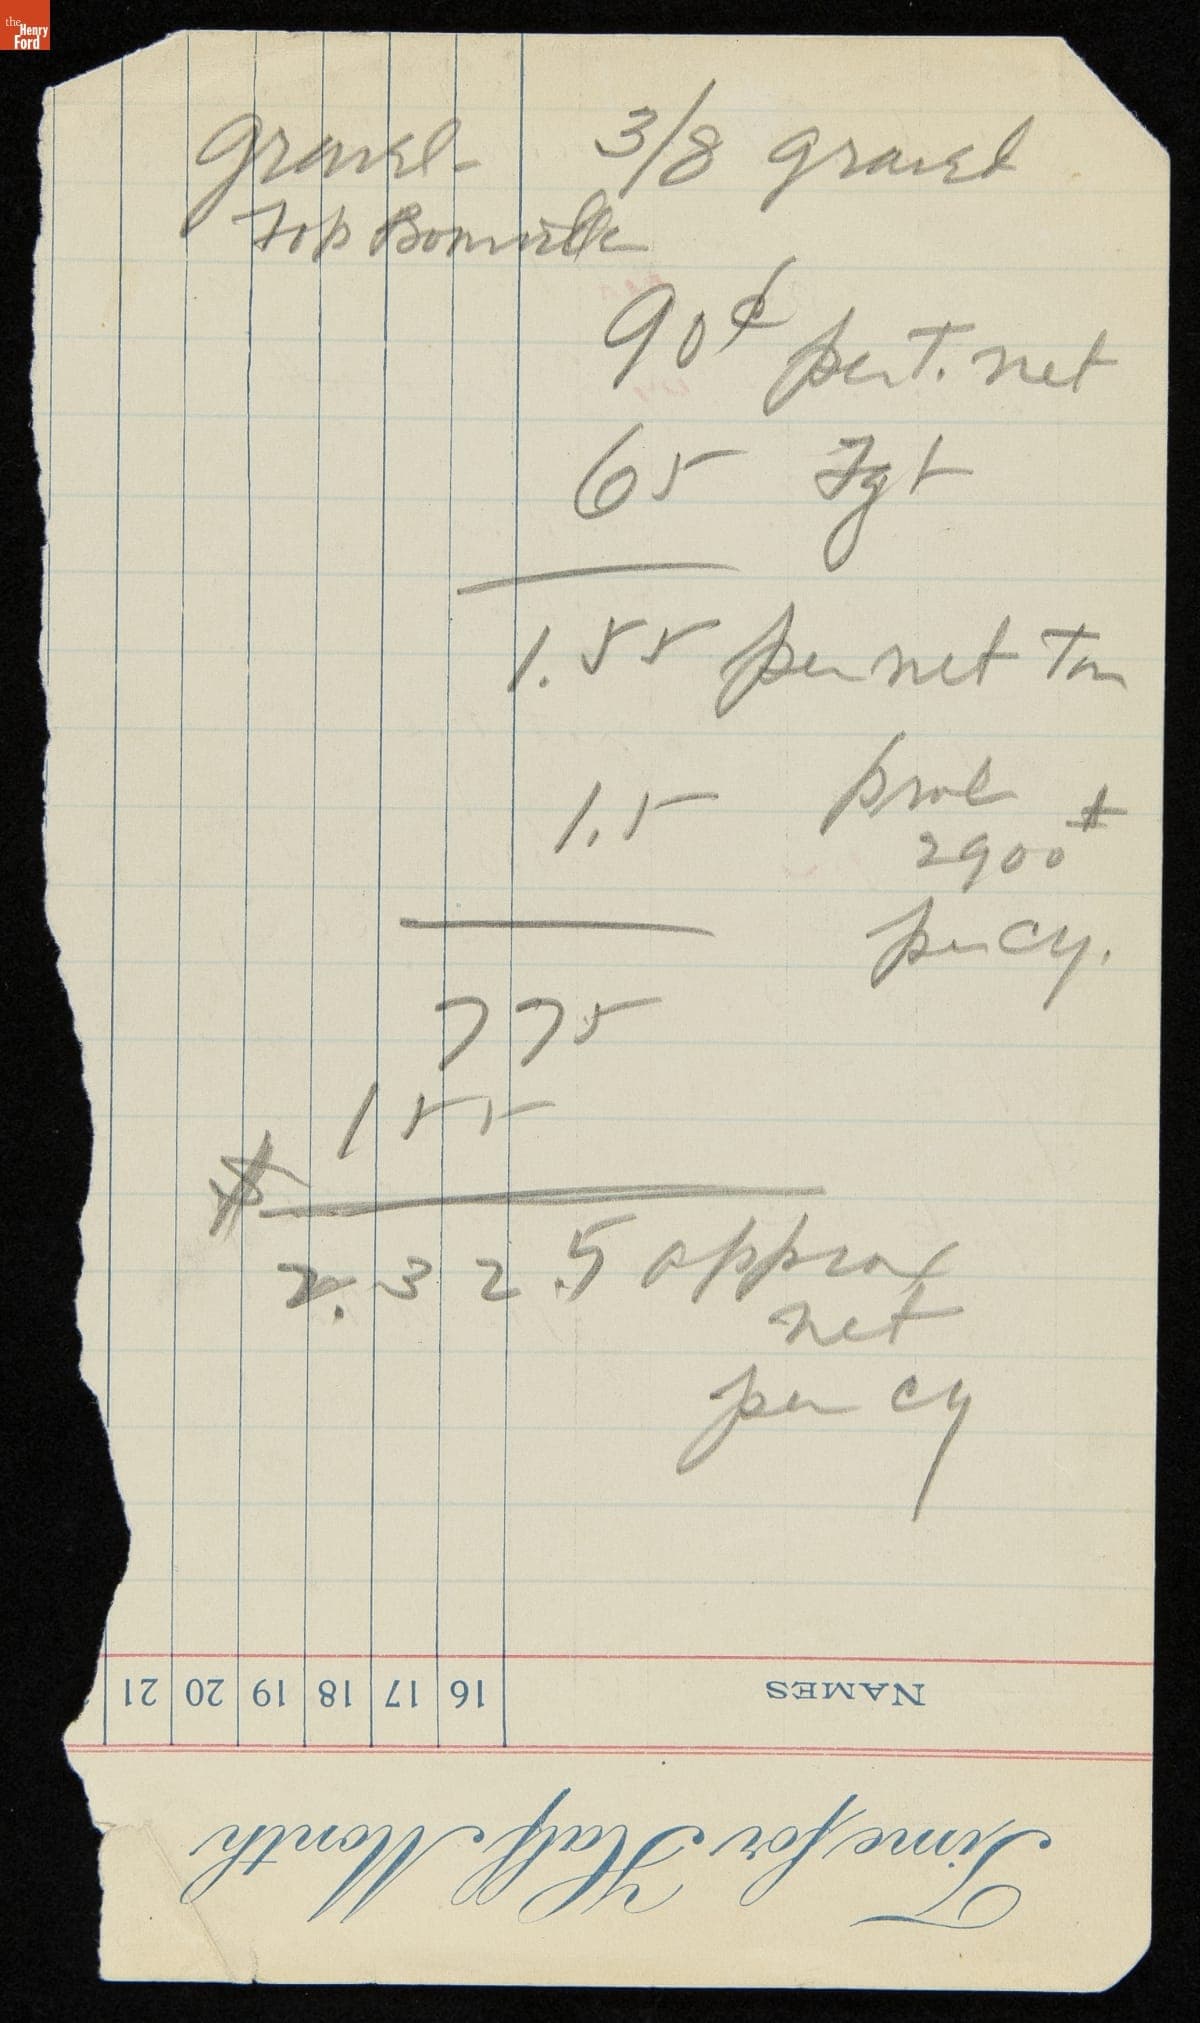 the
Henry
Ford
Gravel 3/8 gravel
Fob Bonneville
90¢ per T. net
65 Fgt
1.55 per net Ton
1.5 prob
2900 #
per cy.
775
155
$
2.32.5 approx
net
per cy
21 20 19 18 17 16 NAMES
Time for Half Month